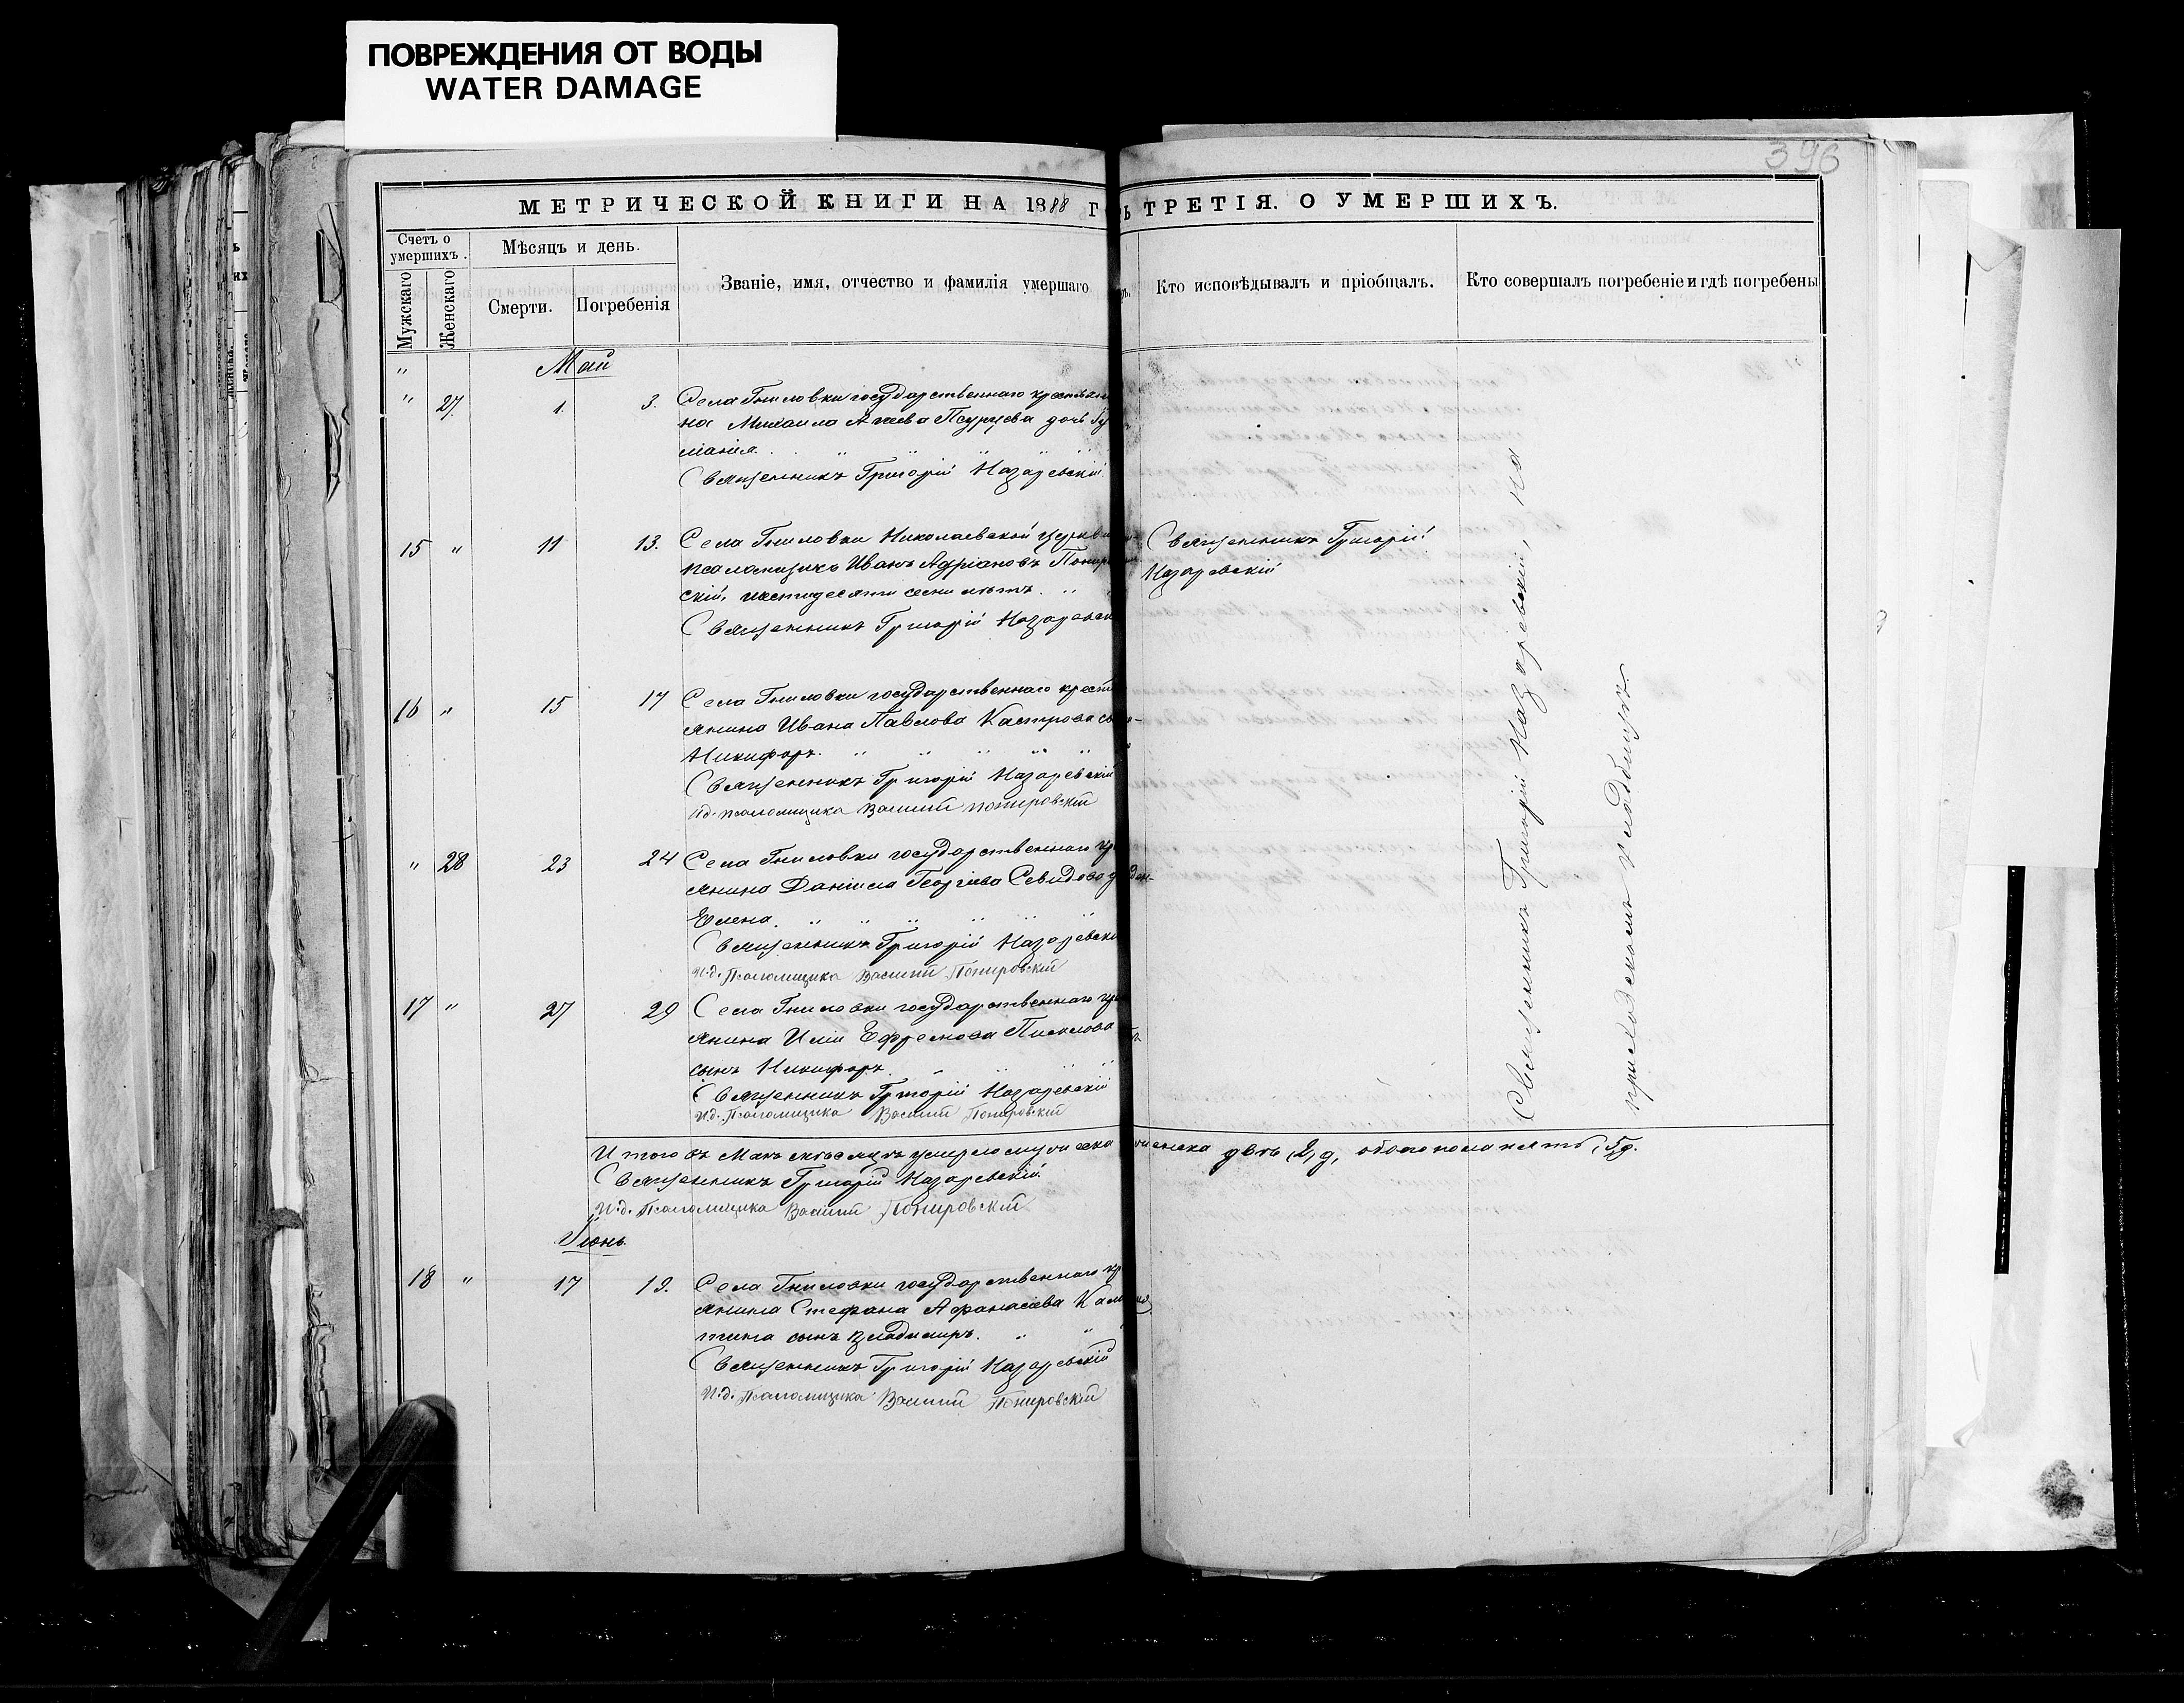 ПОВРЕЖДЕНИЯ ОТ ВОДЫ
WATER DAMAGE
396
МЕТРИЧЕСКОЙ КНИГИ НА 1888 Г
Ь ТРЕТІЯ. О УМЕРШИХЪ.
Счетъ о умершихъ.
Мужскаго
Женскаго
Мѣсяцъ и день.
Смерти.
Погребенія
Званіе, имя, отчество и фамилія умершаго
Кто исповѣдывалъ и пріобщалъ.
Кто совершалъ погребеніе и гдѣ погребены
Май
" 27 1. 3. Села Гниловки государственнаго крестьяни
на Михаила дочь
Священникъ Григорій Назаревскій
15 " 11 13. Села Гниловки Николаевской церкви
псаломщикъ Иванъ Адріановъ Пониров
скій, шестидесяти семи лѣтъ.
Священникъ Григорій Назаревскій
Священникъ Григорій
Назаревскій
16 " 15 17 Села Гниловки государственнаго крест
янина Ивана Павлова сынъ
Никифоръ.
Священникъ Григорій Назаревскій
И.д. псаломщика Василій Понировскій
" 28 23 24 Села Гниловки государственнаго кр
янина Даніила Георгіева Севидова
Елена.
Священникъ Григорій Назаревскій
И.д. Псаломщика Василій Понировскій
17 " 27 29 Села Гниловки государственнаго кр
янина Иліи Ефремова
сынъ Никифоръ.
Священникъ Григорій Назаревскій
И.д. Псаломщика Василій Понировскій
Священникъ Григорій Назаревскій, на
приходскомъ кладбищѣ.
Итого въ Маѣ мѣсяцѣ умерло мужеска женска двѣ, 2, д, обоего пола пять, 5 д.
Священникъ Григорій Назаревскій
И.д. Псаломщика Василій Понировскій
Іюнь
18 " 17 19. Села Гниловки государственнаго кр
янина Стефана Афанасіева
сынъ Владимиръ.
Священникъ Григорій Назаревскій
И.д. Псаломщика Василій Понировскій